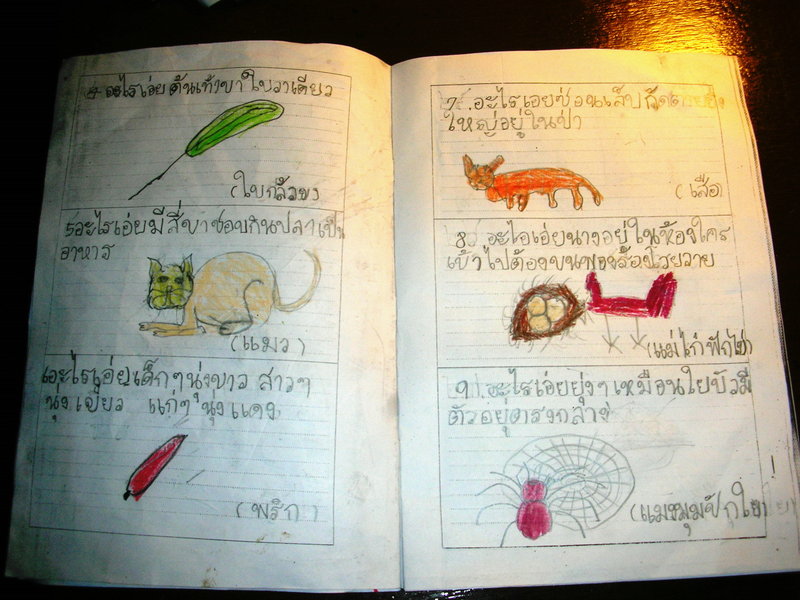 4. อะไรเอ่ย ต้นเท่าขา ใบวาเดียว
(ใบกล้วย)
5.อะไรเอ่ยมีสี่ขาชอบกินปลาเป็น
อาหาร
(แมว)
อะไรเอ่ยเด็กๆนุ่งขาว สาวๆ
นุ่งเขียว แก่ๆนุ่งแดง
(พริก)
7. อะไรเอยซ่อนเล็บ
ใหญ่อยู่ในป่า
(เสือ)
8. อะไอเอ่ยนางอยู่ในห้องใคร
เข้าไปต้องขนพองร้องโวยวาย
(แม่ไก่ฟักไข่)
9. อะไรเอ่ยยุ่งๆเหมือนใยบัวมี
ตัวอยู่ตรงกลาง